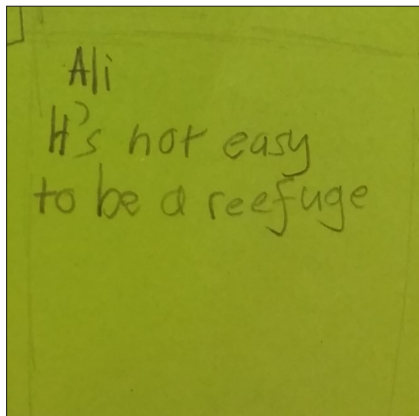 Ali
It's not easy
to be a reefuge